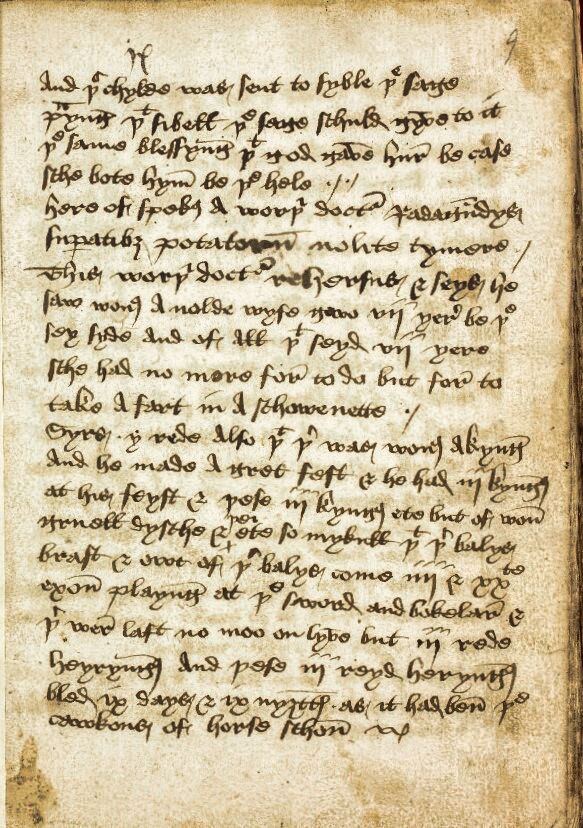 9
And þe chylde was sent to syble þe sage
þyng þt sibell þe sage schuld gyve to it
þe same blessyng þt god gave hur be case
sche bote hym be þe hele
here of spekes A worþ doctr Radagundys
supatibz potatorum nolite tymere
This worþ doctr rehersus & seys he
saw wons A nolde wyfe gwo vii yer be þe
sey syde And of All þt seyd vii yere
sche had no more for to do but for to
take A fart in A schowenette
Syrs y rede Also þt þr was wons A kyng
And he made A gret fest & he had iii kyngs
at his feyst & þese iii kyngs ete but of won
gruell dysche & þei ete so mykull þt þr balys
brast & owt of þr balys come iiii & xxte
exon playng at þe sword and bokelar &
þr wer laft no moo on lyve but iii rede
heryngs And þese iii reyd heryngs
bled ix days & ix nyȝtts as it had ben þe
cawkons of horse schon